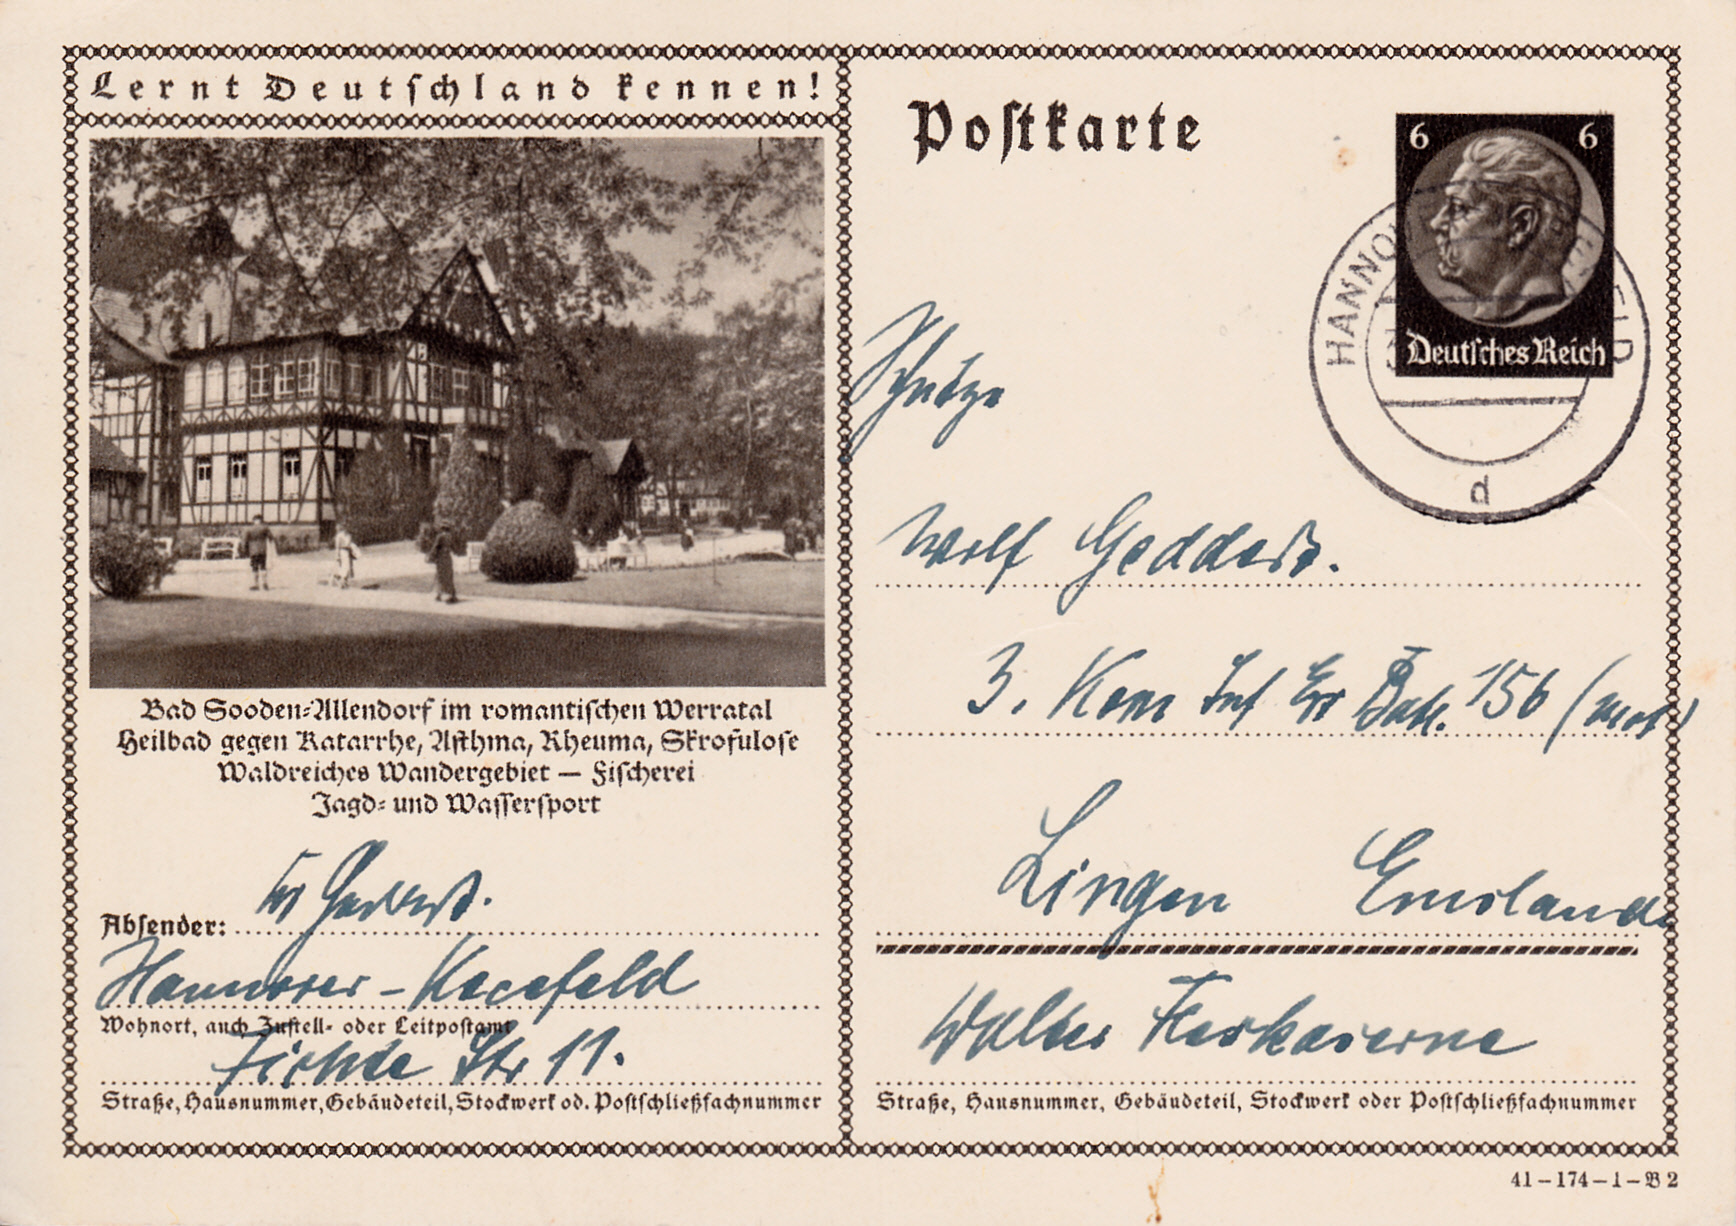 Lernt Deutschland kennen!
Bad Sooden-Allendorf im romantischen Werratal
Heilbad gegen Katarrhe, Asthma, Rheuma, Skrofulose
Waldreiches Wandergebiet — Fischerei
Jagd- und Wassersport
Absender:
Hannover-
Wohnort, auch Zustell- oder Leitpostamt
Str 11.
Straße, Hausnummer, Gebäudeteil, Stockwerk od. Postschließfachnummer
Postkarte
6 6
Deutsches Reich
d
Schütze
Wolf
3. Kom Inf Ers Batl. 156 (mot)
Lingen Emsland
Straße, Hausnummer, Gebäudeteil, Stockwerk oder Postschließfachnummer
41-174-1-B 2